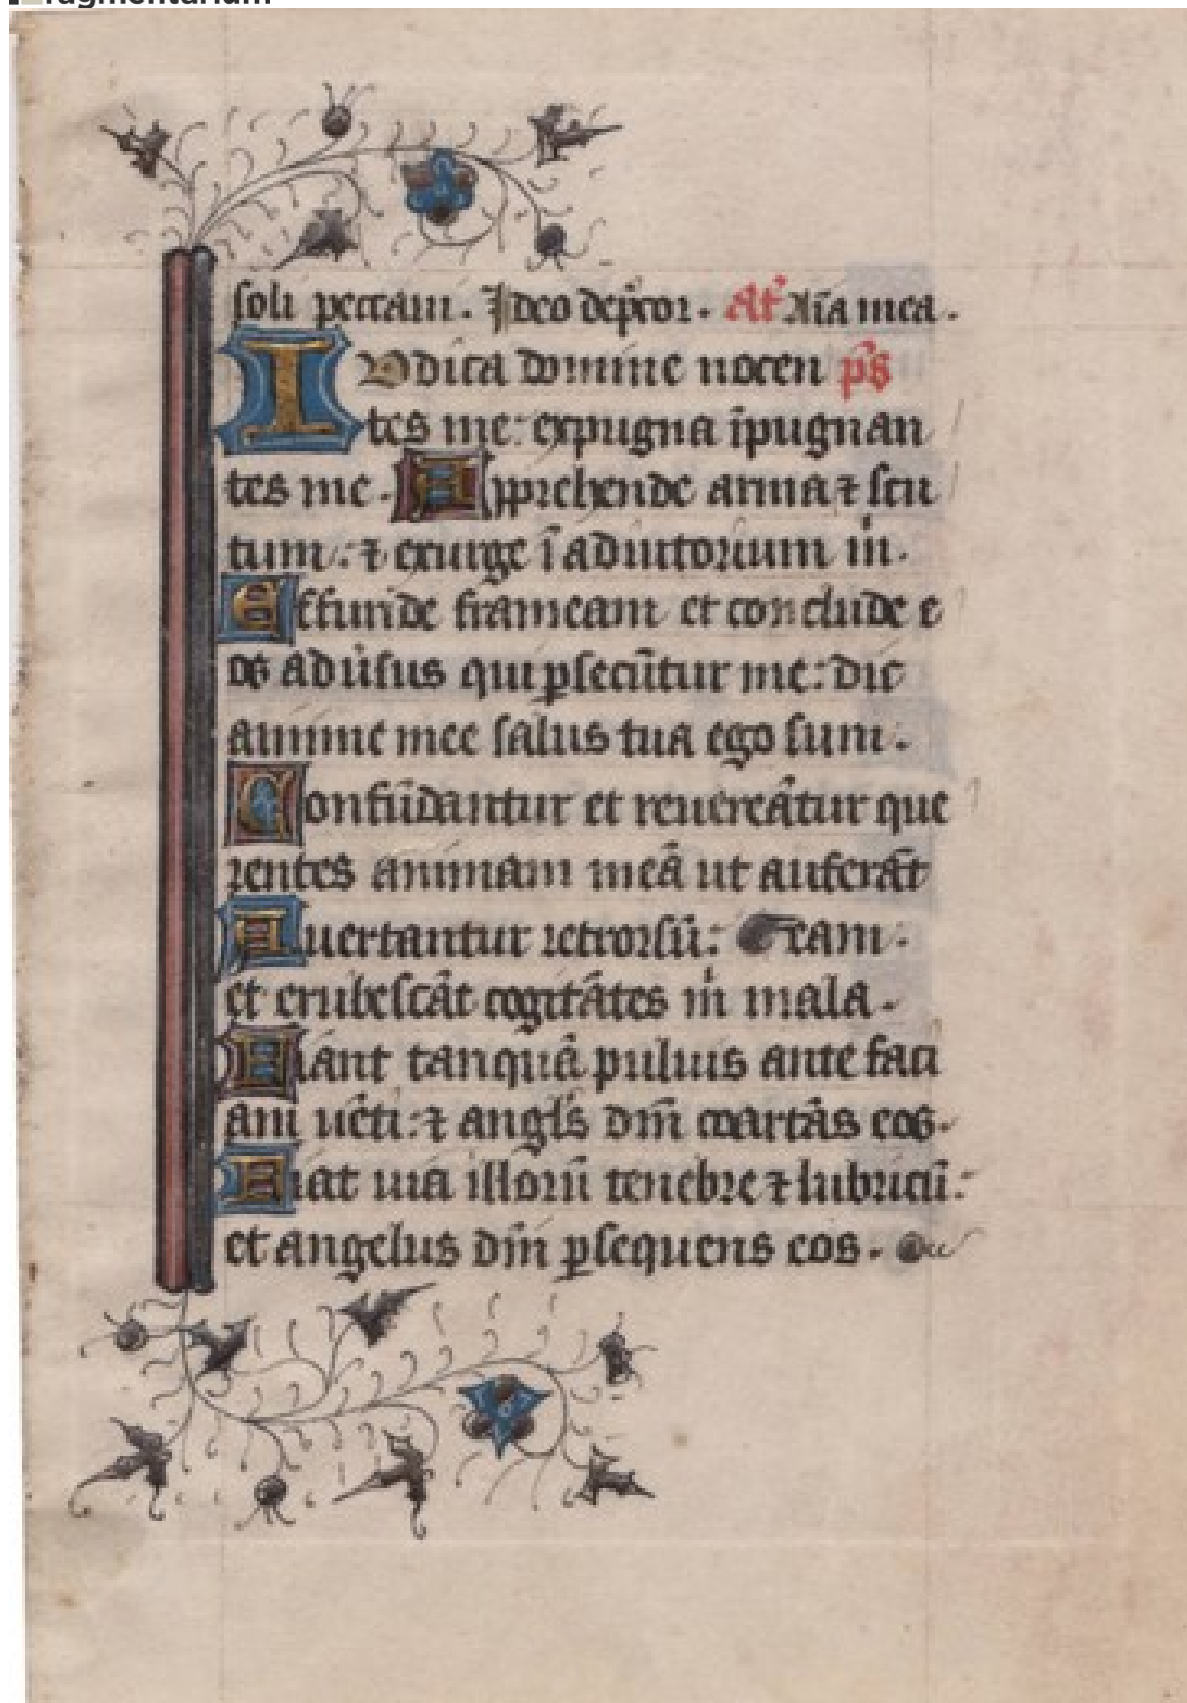 ragmentarium
soli peccaui. Ideo dep̄cor. At̄ Aīa mea.
IUdica domine nocen ps̄
tes me: expugna īpugnan
tes me. Apprehende arma ⁊ scu
tum: ⁊ exurge ī adiutorium m̄.
Effunde frameam et conclude e
os adu̓sus qui ꝑsecūtur me: dic
anime mee salus tua ego sum.
Confūdantur et reuereātur que
rentes animam meā ut auferāt
Auertantur retrorsū: eam.
et erubescāt cogitātes m̄ mala.
Fiant tanquā puluis ante faci
am uēti: ⁊ angl̓s dm̄ coartās eos.
Fiat uia illorū tenebre ⁊ lubricū:
et angelus dm̄ ꝑsequens eos.